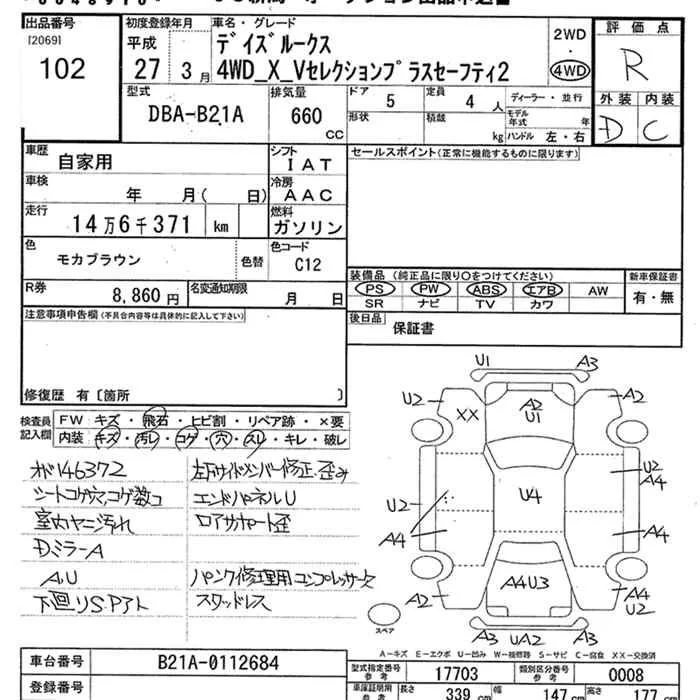 出品番号
[2069]
102
初度登録年月
平成
27 3月
車名・グレード
デイズルークス
4WD_X_Vセレクションプラスセーフティ2
2WD
・
4WD
評価点
R
外装 内装
D C
型式
DBA-B21A
排気量
660
CC
ドア
5
定員
4 人
ディーラー・並行
形状
積載
kg
モデル年式 年
ハンドル 左・右
車歴
自家用
シフト
IAT
セールスポイント(正常に機能するものに限ります)
車検
年 月( 日)
冷房
AAC
走行
14万6千371 km
燃料
ガソリン
色
モカブラウン
色替
色コード
C12
装備品 (純正品に限り○をつけてください)
新車保証書
PS PW ABS エアB AW
有・無
SR ナビ TV カワ
R券
8,860 円
名変通知期限
月 日
後日品
保証書
注意事項申告欄(不具合内容等は具体的に記入して下さい)
修復歴 有〔箇所 〕
検査員記入欄
FW キズ・飛石・ヒビ割・リペア跡・×要
内装 キズ・汚レ・コゲ・穴・スレ・キレ・破レ
メーター146372
シートコゲ穴、コゲ数コ
室内ヤニ汚れ
DミラーA
A、U
下廻りS、Pアト
左Fサイドメンバー修正、歪み
エンドパネルU
ロアサポート歪
パンク修理用コンプレッサー欠
スタッドレス
U1 A3
U2 XX A2 U1 A2
U2 A4
U2 U4
A4 A4
A2 A4U3 A4 U2
A3 UA2 A3
スペア
A-キズ E-エクボ U-凹み W-補修跡 S-サビ C-腐食 XX-交換済
車台番号
B21A-0112684
登録番号
型式指定番号
参考
17703
類別区分番号
参考
0008
車庫証明用
参考
長さ
339 cm
幅
147 cm
高さ
177 cm